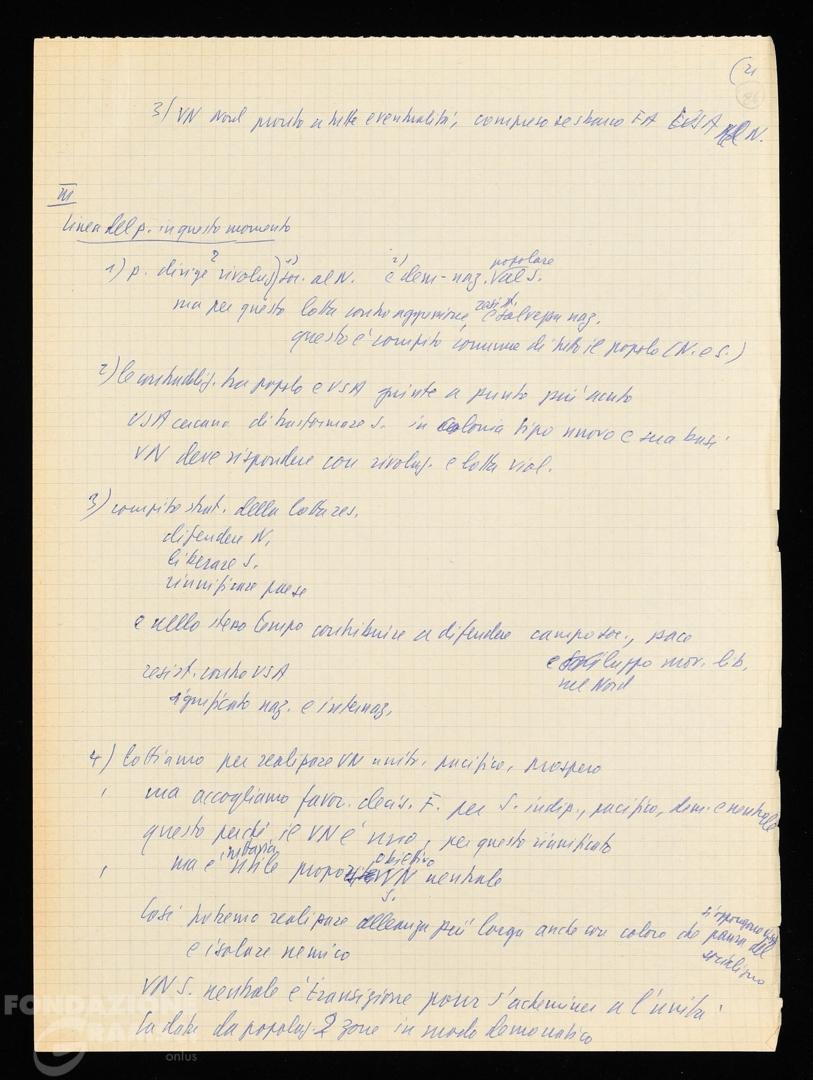 (21
3) VN Nord pronto a tutte eventualità, compreso sbarco FA USA nel N.
III
Linea del p. in questo momento
1) p. dirige 2 rivoluz) 1) soc. al N. 2) e dem-naz. popolare al S.
ma per questo lotta contro aggressione, resist. e salvezza naz.
questo è compito comune di tutto il popolo (N. e S.)
2) le contraddiz. tra popolo e USA giunte a punto più acuto
USA cercano di trasformare S. in colonia tipo nuovo e sua base
VN deve rispondere con rivoluz. e lotta viol.
3) compito strat. della lotta res.
difendere N.
liberare S.
riunificare paese
e nello stesso tempo contribuire a difendere campo soc., pace
e sviluppo mov. lib.
nel Nord
resist. contro USA
significato naz. e internaz.
4) Lottiamo per realizzare VN unito, pacifico, prospero
ma accogliamo favor. decis. F. per S. indip., pacifico, dem. e neutrale
questo perché il VN è uno, per questo riunificato
ma è tuttavia utile obiettivo VN S. neutrale
Così potremo realizzare alleanza più larga anche con coloro che paura del socialismo
e isolare nemico
VN S. neutrale è transizione pour s'acheminer a l'unità
La date da popolaz. 2 zone in modo democratico
FONDAZIONE
GRAMSCI
onlus